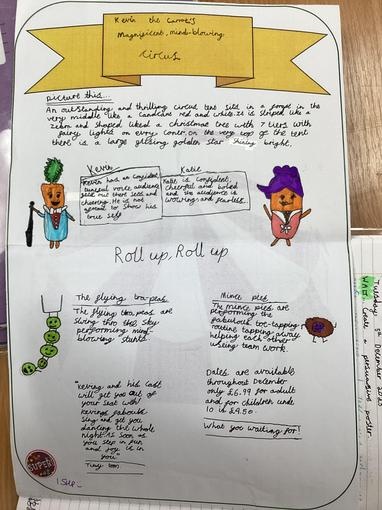 Kevin the Carrot's
Magnificent, mind-blowing
Circus
picture this...
An outstanding and thrilling circus tent sits in a forest in the
very middle like a candcane red and white. It is striped like a
zebra and shaped liked a christmas tree with 7 tiers with
fairy lights on evry corner, on the very top of the tent
there is a large glissing golden star shining bright.
Kevin
Kevin had an confident
tuneful voice audience
out there seats and
cheering. He is not
to show his
true self
Katie
Katie is confident,
cheerful and
and the audience is
wowing and fearless.
Roll up, Roll up
The flying tra-peas
The flying tra-peas are
swing thro the sky
performing mind
blowing stunts.
Mince pies
The mince pies are
performing the
fabulous toe-tapping
routine tapping away
helping each other
using team work.
Dates are available
throughout December
only £6.99 for adult
and for children unde
10 is £4.50.
What you waiting for!
"kevin and his cast
will get you out of
your seat with
kevins
sing and get you
dancing the whole
night. As soon as
you step in fun
and joy is in
you"
Tiny tom
SUPER
Tuesday
WALT: Create a persuasive poster.